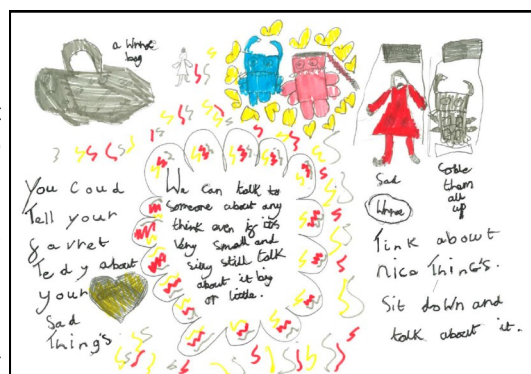 a Wrhre
bag
You coud
Tell your
favret
Tedy about
your
Sad
Thing's
We can talk to
someone about any
think even if it's
Very small and
silly still talk
about it big
or little.
Sad
them
all
up
Wrhre
Tink about
nice Thing's.
Sit down and
talk about it.